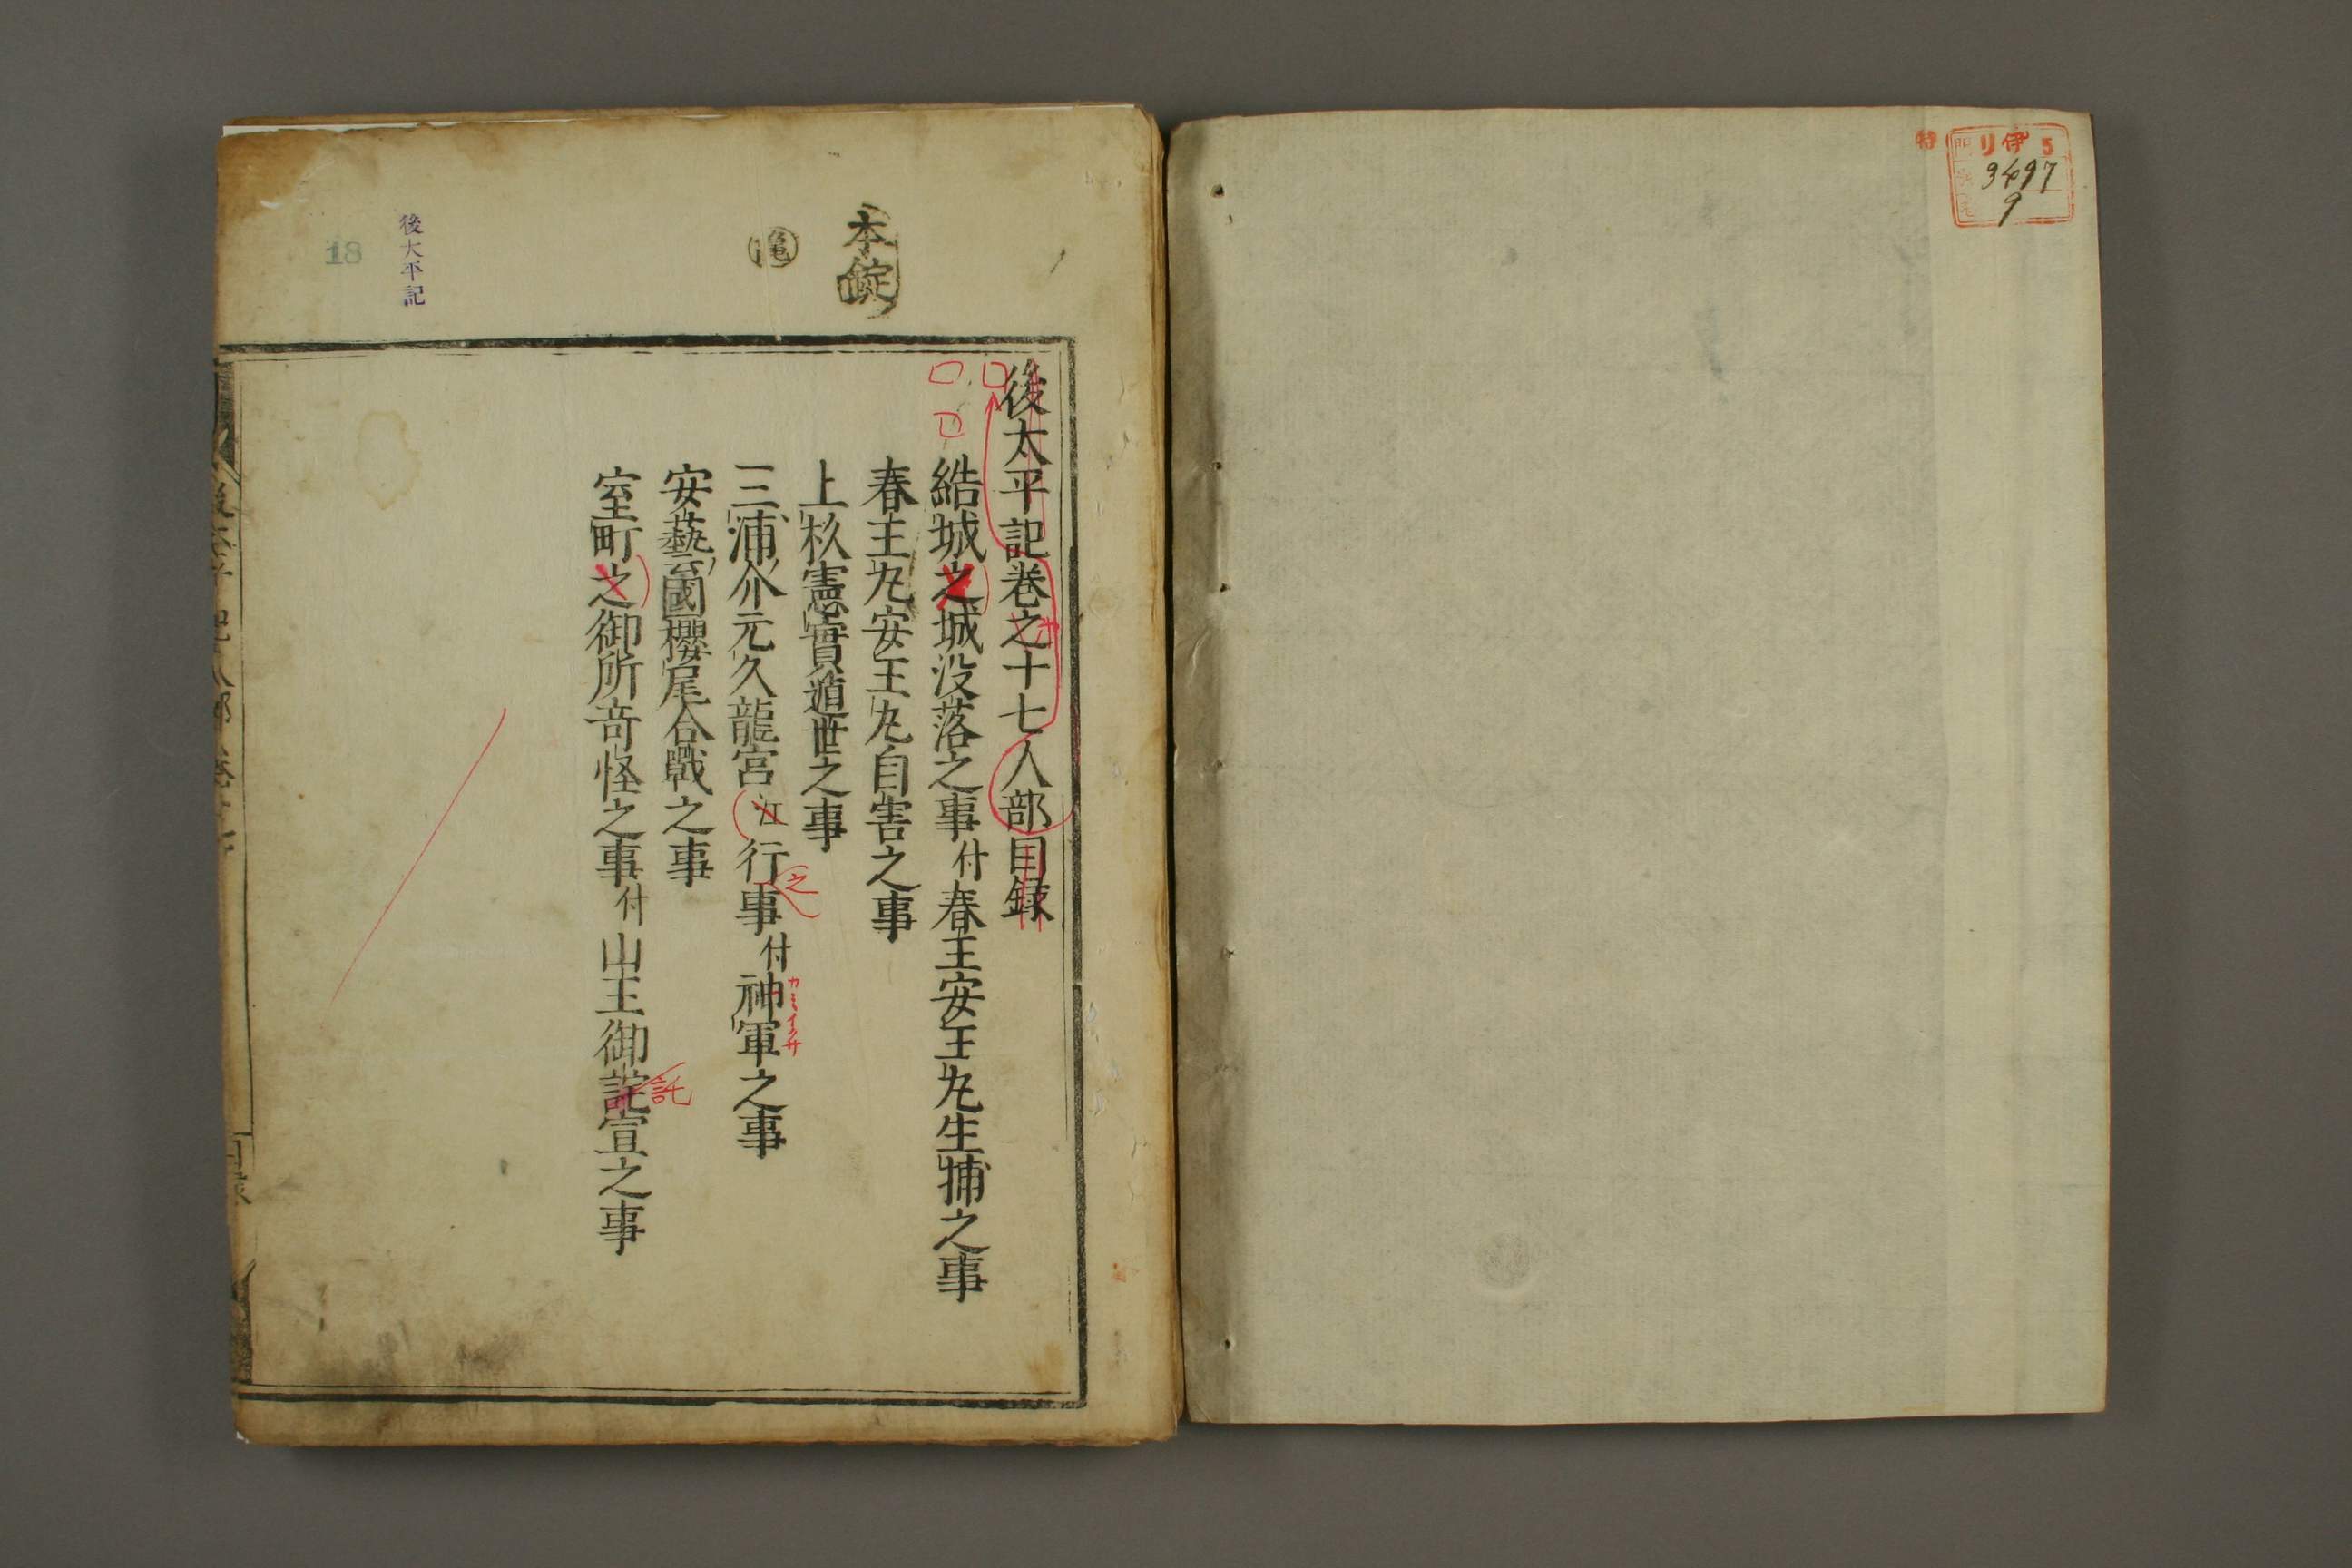 特
リ伊 5
3497
9
本錠
亀
後太平記
18
後太平記巻之十七人部目録
結城之城没落之事付春王安王丸生捕之事
春王丸安王丸自害之事
上杦憲實遁世之事
三浦介元久龍宮江行事付神軍之事
之
カミイクサ
安藝國櫻尾合戰之事
室町之御所奇怪之事付山王御詫宣之事
託